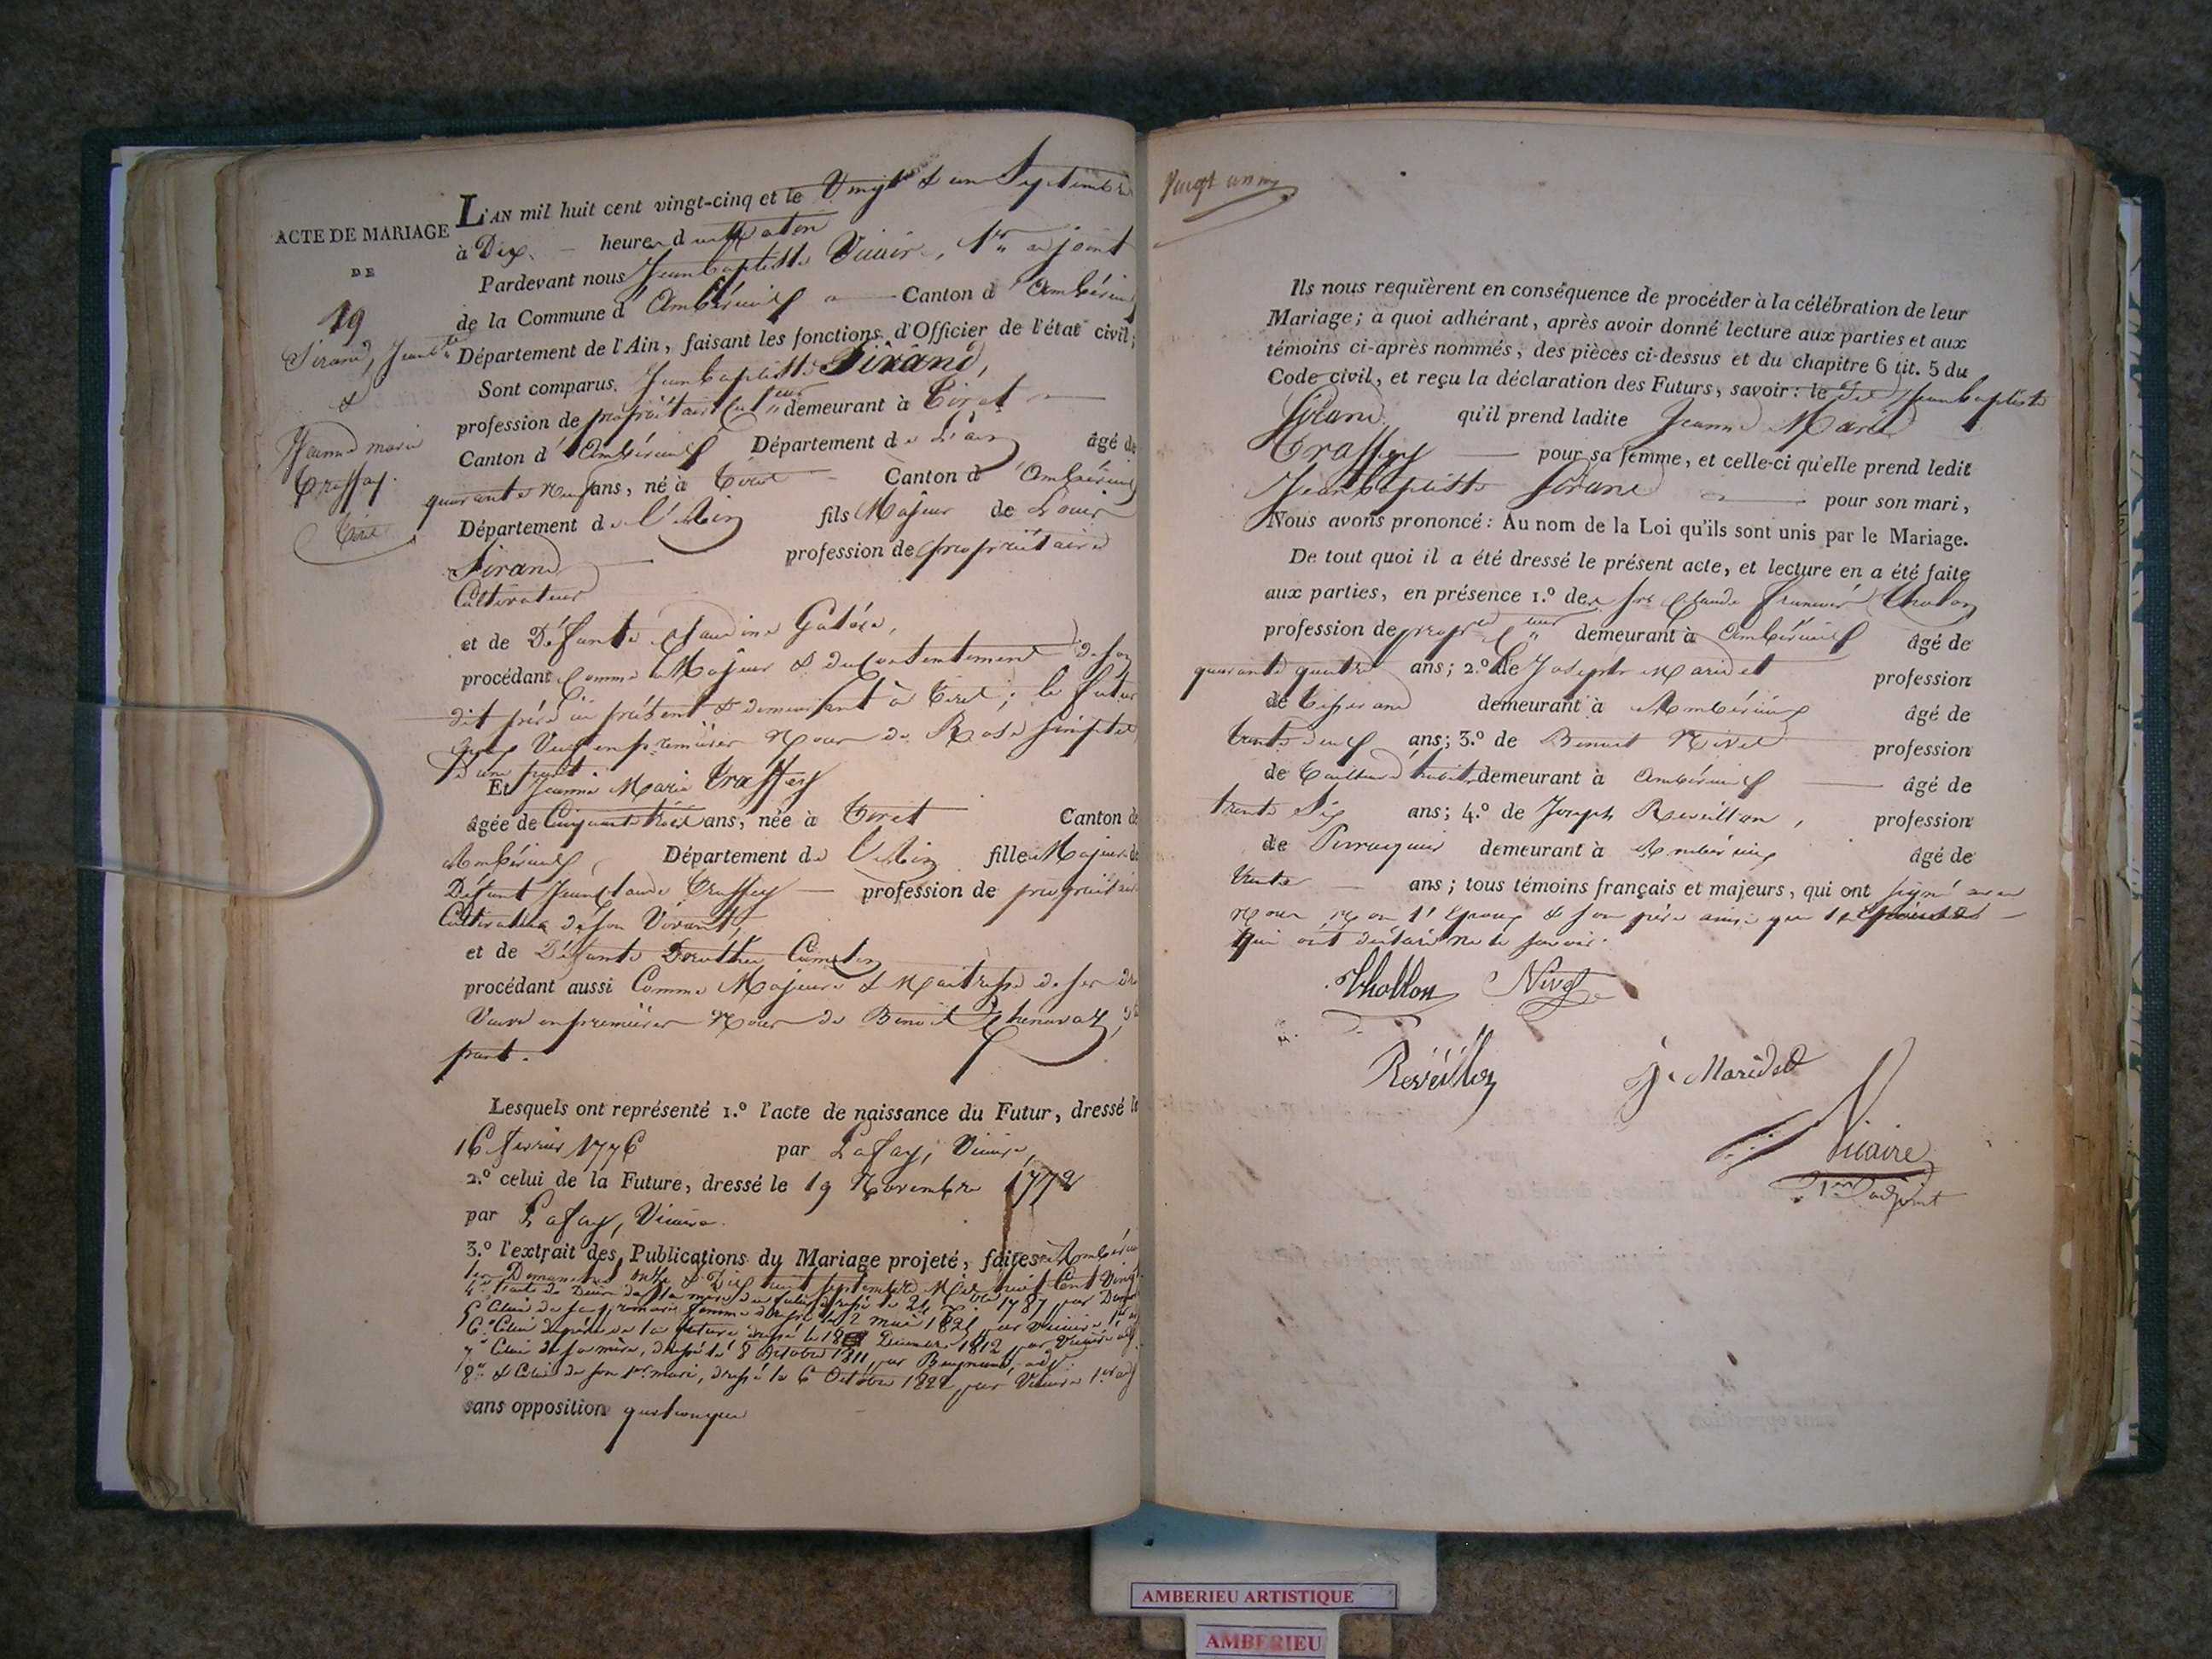 ACTE DE MARIAGE
DE
19
Sirand, Jean Bte
&
Jeanne marie
Trassey.
Tiret
L'AN mil huit cent vingt-cinq et le Vingt & un Septembre
à Dix heures du Matin
Pardevant nous Jean baptiste Vicaire, 1er adjoint
de la Commune d'Ambérieux Canton d'Ambérieux
Département de l'Ain, faisant les fonctions d'Officier de l'état civil;
Sont comparus. Jean baptiste Sirand,
profession de propriétaire Culteur demeurant à Tiret
Canton d'Ambérieux Département de L'ain âgé de
quarante neuf ans, né à Tiret Canton d'Ambérieux
Département de l'Ain fils Majeur de Louis
Sirand profession de propriétaire
Cultivateur
et de Défunte Claudine
procédant Comme Majeur & du Consentement de son
dit père ici présent & demeurant à Tiret; le futur
Veuf en premières Noces de Rose
D'une part.
Et Jeanne Marie Trassey
âgée de Cinquante trois ans, née à Tiret Canton de
Ambérieux Département de L'Ain fille Majeure de
Défunt Jean Claude Trassey profession de propriétaire
Cultivateur de son Vivant,
et de Défunte Dorothée
procédant aussi Comme Majeure & Maitresse de ses dr
Veuve en premières Noces de Benoit Chenavaz,
part.
Lesquels ont représenté 1.º l'acte de naissance du Futur, dressé le
16 fevrier 1776 par Lafay, Vicaire,
2.º celui de la Future, dressé le 19 Novembre 1772
par Lafay, Vicaire.
3.º l'extrait des Publications du Mariage projeté, faites à Ambérieux
les Dimanches onze & Dix huit septembre Mil huit Cent Vingt
4º de Décès de la mère du futur dressé le 24 1787 par
5º Celui de sa première femme dressé le 2 mai 1821 par Vicaire 1er
6º Celui du père de la future dressé le 18 Décembre 1812 par Vicaire adj.
7º Celui de sa mère, dressé le 8 Octobre 1811 par adj.
8º & Celui de son 1er mari, dressé le 6 Octobre 1822 par Vicaire 1er adj
sans opposition quelconque
Vingt
Ils nous requièrent en conséquence de procéder à la célébration de leur
Mariage; à quoi adhérant, après avoir donné lecture aux parties et aux
témoins ci-après nommés, des pièces ci-dessus et du chapitre 6 tit. 5 du
Code civil, et reçu la déclaration des Futurs, savoir: le dit Jean baptiste
Sirand qu'il prend ladite Jeanne Marie
Trassey pour sa femme, et celle-ci qu'elle prend ledit
Jean baptiste Sirand pour son mari,
Nous avons prononcé: Au nom de la Loi qu'ils sont unis par le Mariage.
De tout quoi il a été dressé le présent acte, et lecture en a été faite
aux parties, en présence 1.º des Srs Claude francois Chollon
profession de propre demeurant à Ambérieux âgé de
quarante quatre ans; 2.º de Joseph Maridet profession
de Tisserand demeurant à Ambérieux âgé de
trente neuf ans; 3.º de Benoit Nivet profession
de Tailleur d'habits demeurant à Ambérieux âgé de
trente Six ans; 4.º de Joseph Reveillon, profession
de Perruquier demeurant à Ambérieux âgé de
trente ans; tous témoins français et majeurs, qui ont signé avec
Nous, Non l'Epoux & son père ainsi que l'Epouse
qui ont déclaré ne le savoir.
Chollon Nivet
Revéillon J. Maridet
Vicaire
1er adjoint
AMBERIEU ARTISTIQUE
AMBERIEU